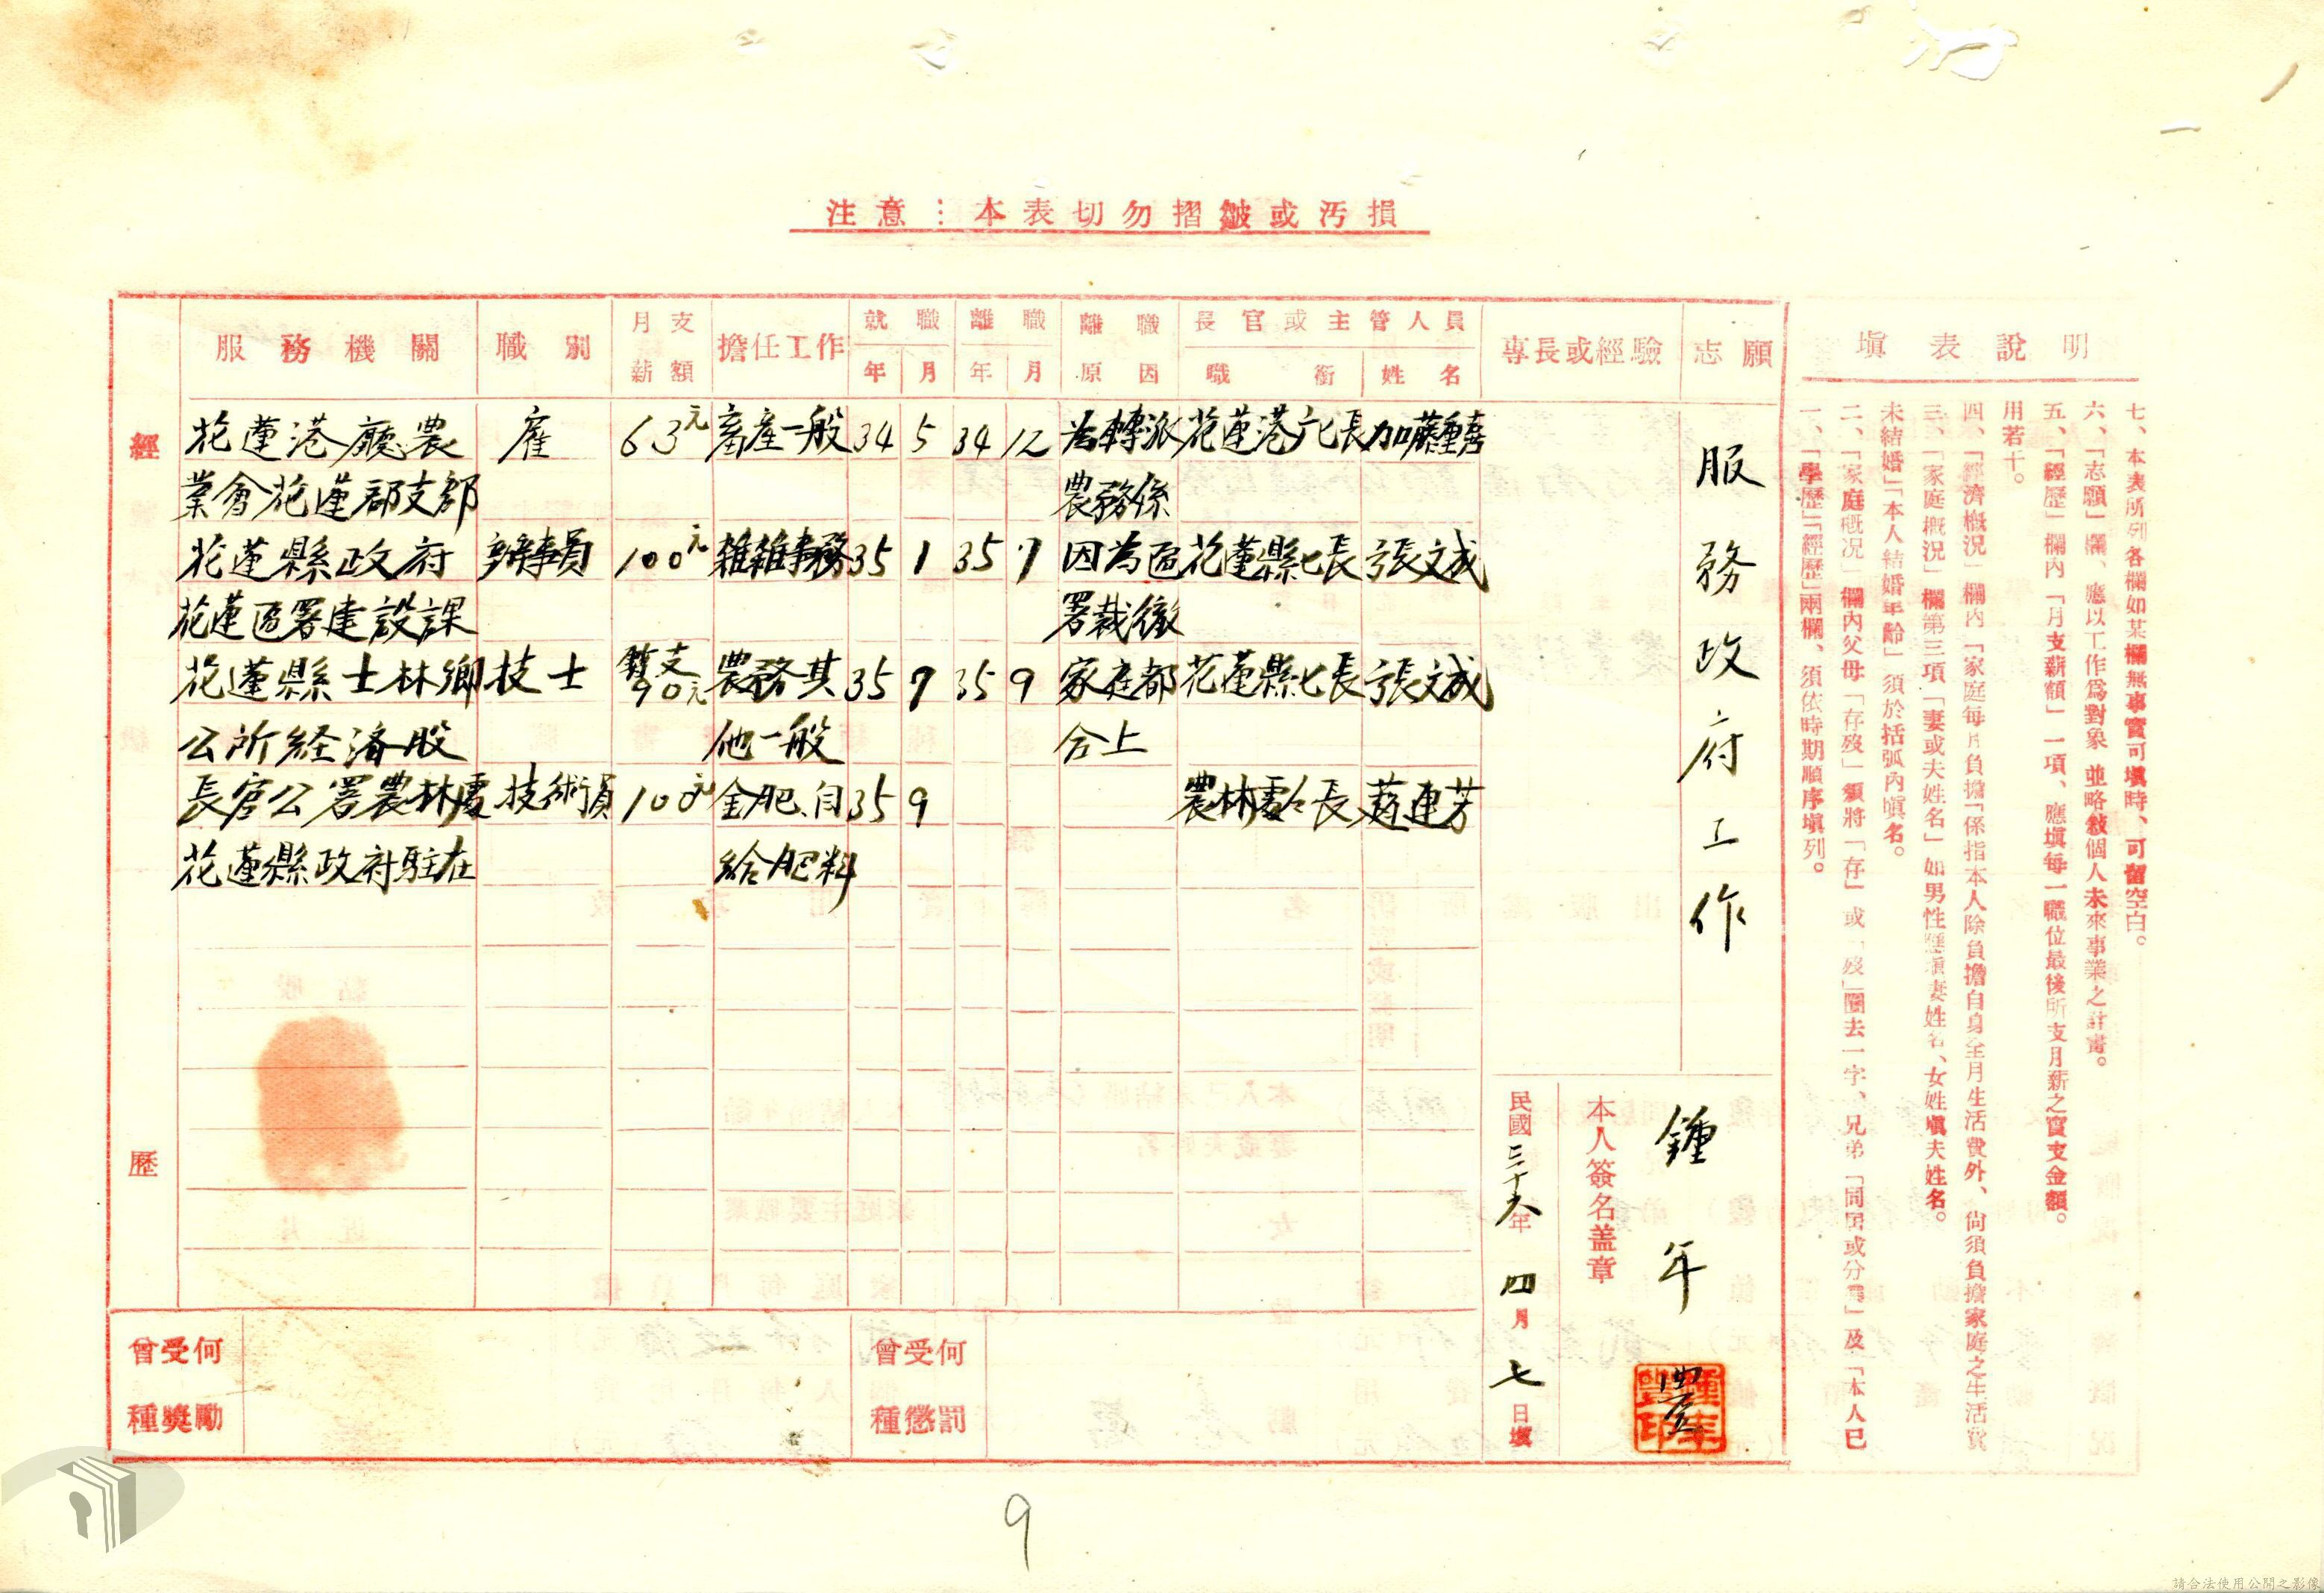 注意：本表切勿摺皺或汚損
經歷
服務機關 職別 月支薪額 擔任工作 就職年月 離職年月 離職原因 長官或主管人員職銜姓名 專長或經驗 志願
花蓮港廳農 雇 63元 畜產一般 34 5 34 12 為轉派 花蓮港廳長 加藤重喜
業會花蓮郡支部 農務係
花蓮縣政府 辦事員 100元 雜事務 35 1 35 7 因為區 花蓮縣々長 張文成
花蓮區署建設課 署裁撤
花蓮縣士林鄉 技士 實支90元 農務其 35 7 35 9 家庭都 花蓮縣々長 張文成
公所経済股 他一般 合上
長官公署農林處 技術員 100元 金肥、自 35 9 農林處々長 趙連芳
花蓮縣政府駐在 給肥料
服務政府工作
本人簽名盖章
鍾年豐
民國三十六年四月七日填
曾受何種獎勵
曾受何種懲罰
填表說明
一、「學歷」「經歷」兩欄、須依時期順序填列。
二、「家庭概况」欄內父母「存歿」須將「存」或「歿」圈去一字、兄弟「同居或分居」及「本人已
未結婚」「本人結婚年齡」須於括弧內填名。
三、「家庭概況」欄第三項「妻或夫姓名」如男性應填妻姓名、女姓填夫姓名。
四、「經濟概況」欄內「家庭每月負擔」係指本人除負擔自身全月生活費外、尙須負擔家庭之生活費
用若干。
五、「經歷」欄內「月支薪額」一項、應填每一職位最後所支月薪之實支金額。
六、「志願」欄、應以工作爲對象 並略敍個人未來事業之計畫。
七、本表所列各欄如某欄無事實可填時、可留空白。
9
請合法使用公開之影像